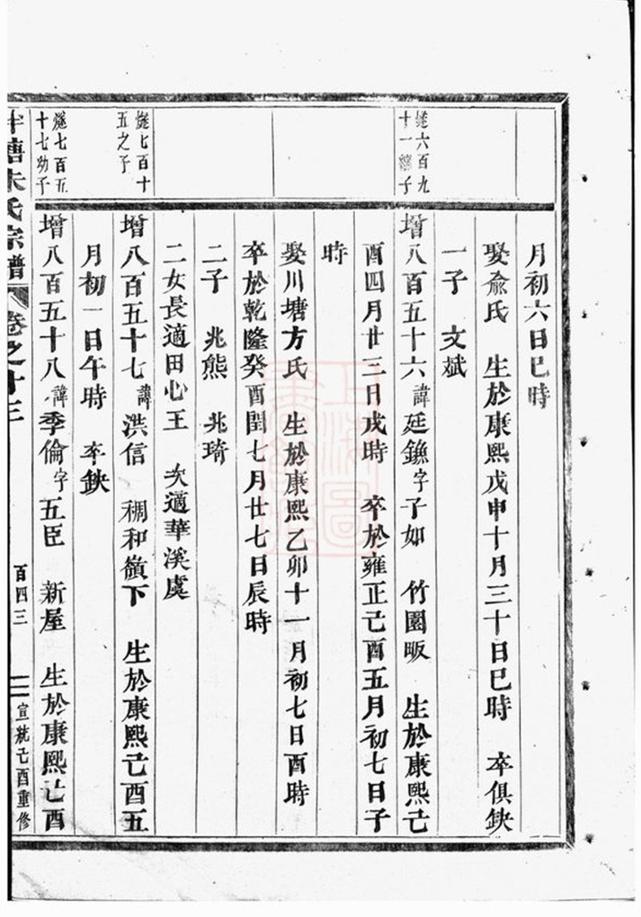 月初六日巳時
娶俞氏 生於康熙戊申十月三十日巳時 卒俱缺
一子 文斌
燧六百九
十一繼子
增八百五十六諱廷鐮字子如 竹園畈 生於康熙己
酉四月廿三日戌時 卒於雍正己酉五月初七日子
時
娶川塘方氏 生於康熙乙卯十一月初七日酉時
卒於乾隆癸酉閏七月廿七日辰時
二子 兆熊 兆琦
二女長適田心王 次適華溪虞
燧七百十
五之子
增八百五十七諱洪信 稠和嶺下 生於康熙己酉五
月初一日午時 卒缺
燧七百五
十七幼子
增八百五十八諱季倫字五臣 新屋 生於康熙己酉
塘朱氏宗譜 卷之十三 百四三 宣統己酉重修
上海圖書館藏